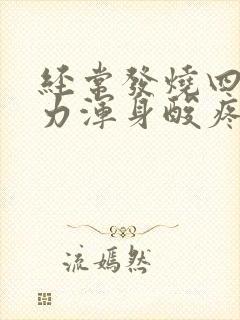 經常發燒四
力渾身酸疼
流嫣然